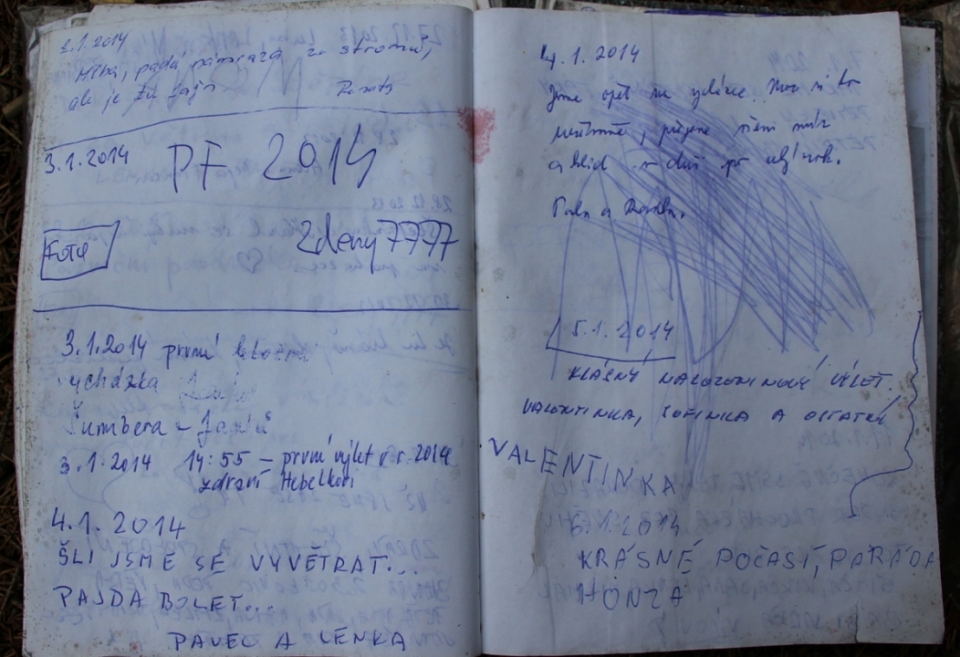 2.1.2014
Mlha, padá námraza ze stromů,
ale je tu fajn
3.1.2014 PF 2014
Foto Zdeny7777
3.1.2014 první letošní
vycházka
Šumbera –
3.1.2014 14:55 – první výlet v r. 2014
zdraví Hebelkovi
4.1.2014
ŠLI JSME SE VYVĚTRAT...
PAJDA BOLET...
PAVEL A LENKA
4.1.2014
Jsme opět na vyhlídce. Moc si to
užíváme, přejeme všem
a klid v duši po celý rok.
5.1.2014
KRÁSNÝ NAROZENINOVÝ VÝLET.
VALENTINKA, SOFINKA A OSTATNÍ
VALENTINKA
6.1.2014
KRÁSNÉ POČASÍ, PARÁDA
HONZA